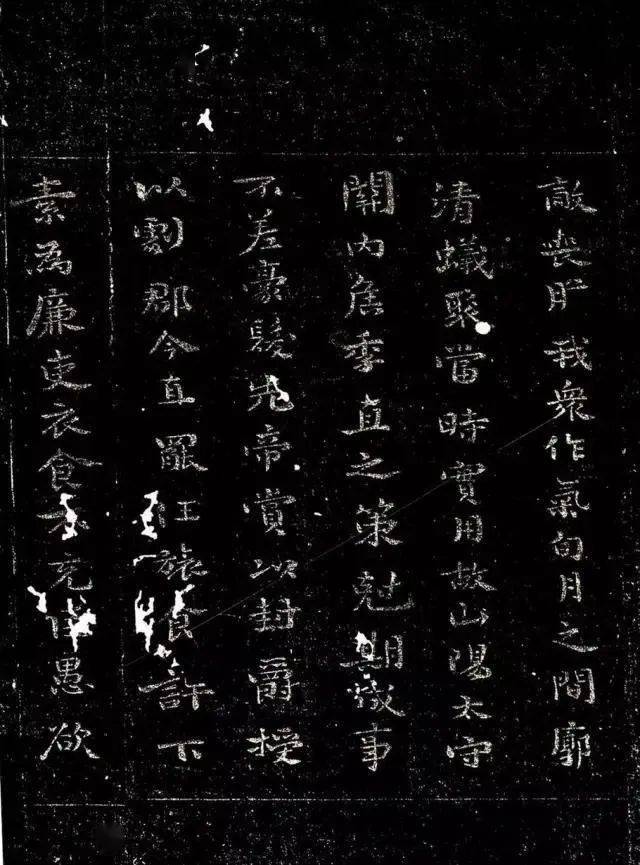 敵喪膽我衆作氣旬月之間廓
清蟻聚當時實用故山陽太守
關內侯季直之策尅期成事
不差豪髮先帝賞以封爵授
以劇郡今直罷任旅食許下
素爲廉吏衣食不充臣愚欲